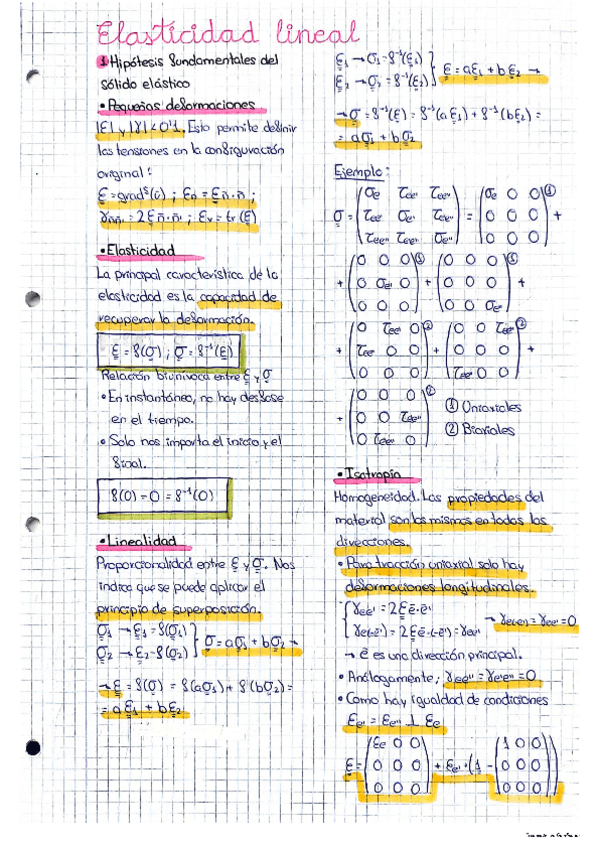 Elasticidad lineal
1 Hipótesis fundamentales del
sólido elástico
• Pequeñas deformaciones
|ε| y |γ| < 0'1. Esto permite definir
las tensiones en la configuración
original:
ε = grad^s(ū) ; εn̄ = ε n̄·n̄ ;
γn̄m̄ = 2 ε n̄·m̄ ; εv = tr(ε)
• Elasticidad
La principal característica de la
elasticidad es la capacidad de
recuperar la deformación.
ε = f(σ) ; σ = f⁻¹(ε)
Relación biunívoca entre ε y σ
• En instantáneo, no hay desfase
en el tiempo.
• Solo nos importa el inicio y el
final.
f(0) = 0 = f⁻¹(0)
• Linealidad
Proporcionalidad entre ε y σ. Nos
indica que se puede aplicar el
principio de superposición.
σ1 → ε1 = f(σ1)
σ2 → ε2 = f(σ2) } σ = aσ1 + bσ2 →
→ ε = f(σ) = f(aσ1) + f(bσ2) =
= aε1 + bε2
ε1 → σ1 = f⁻¹(ε1)
ε2 → σ2 = f⁻¹(ε2) } ε = aε1 + bε2 →
→ σ = f⁻¹(ε) = f⁻¹(aε1) + f⁻¹(bε2) =
= aσ1 + bσ2
Ejemplo:
σ = (σe τee' τee'' ; τee' σe' τe'e'' ; τee'' τe'e'' σe'') = (σe 0 0 ; 0 0 0 ; 0 0 0)① +
+ (0 0 0 ; 0 σe' 0 ; 0 0 0)① + (0 0 0 ; 0 0 0 ; 0 0 σe'')① +
+ (0 τee' 0 ; τee' 0 0 ; 0 0 0)② + (0 0 τee'' ; 0 0 0 ; τee'' 0 0)② +
+ (0 0 0 ; 0 0 τe'e'' ; 0 τe'e'' 0)②
① Uniaxiales
② Biaxiales
• Isotropía
Homogeneidad. Las propiedades del
material son las mismas en todas las
direcciones.
• Para tracción uniaxial solo hay
deformaciones longitudinales.
{ γee' = 2 ε ē·ē'
γe(-e') = 2 ε ē·(-ē') = γee' → γe(-e') = γee' = 0
→ ē es una dirección principal.
• Análogamente, γee'' = γe'e'' = 0
• Como hay igualdad de condiciones
εe' = εe'' ⊥ εe
ε = (εe 0 0 ; 0 0 0 ; 0 0 0) + εe' · (1 - (1 0 0 ; 0 0 0 ; 0 0 0))